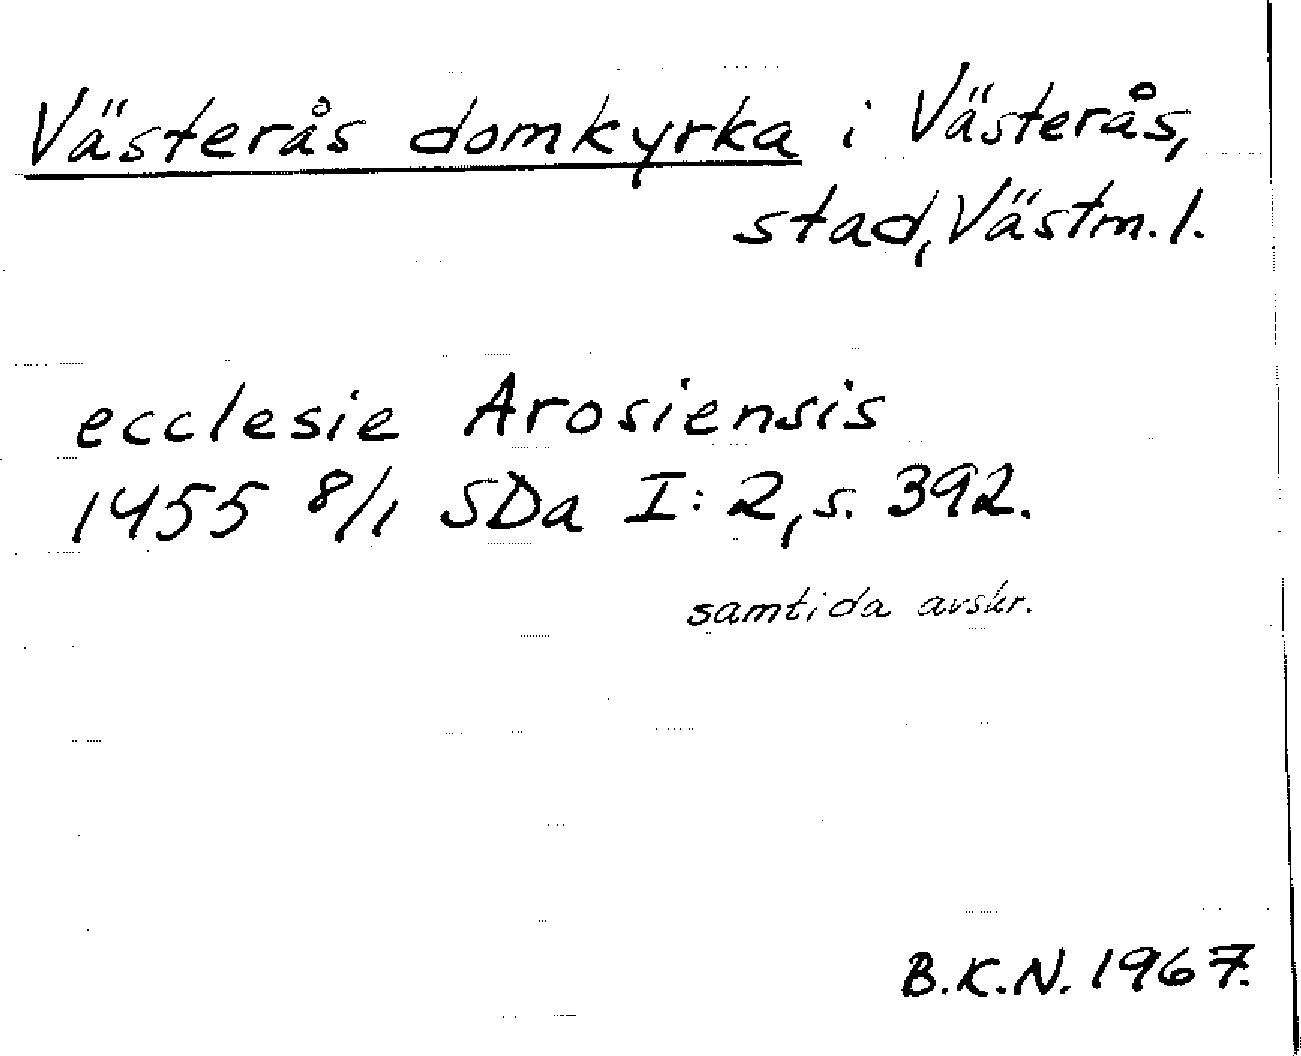 Västerås domkyrka i Västerås,
stad, Västm.l.
ecclesie Arosiensis
1455 8/1 SDa I:2, s. 392.
samtida avskr.
B.K.N. 1967.